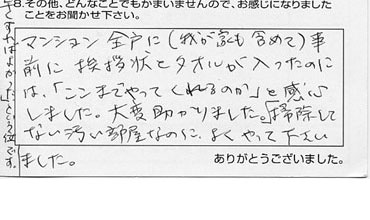 8.その他、どんなことでもかまいませんので、お感じになりました
ことをお聞かせ下さい。
マンション全戸に(我が家も含めて)事
前に挨拶状とタオルが入ったのに
は、「ここまでやってくれるのか」と感心
しました。大変助かりました。「掃除して
ない汚い部屋なのに、よくやって下さい
ました。
ありがとうございました。
すればよかった」という位です。